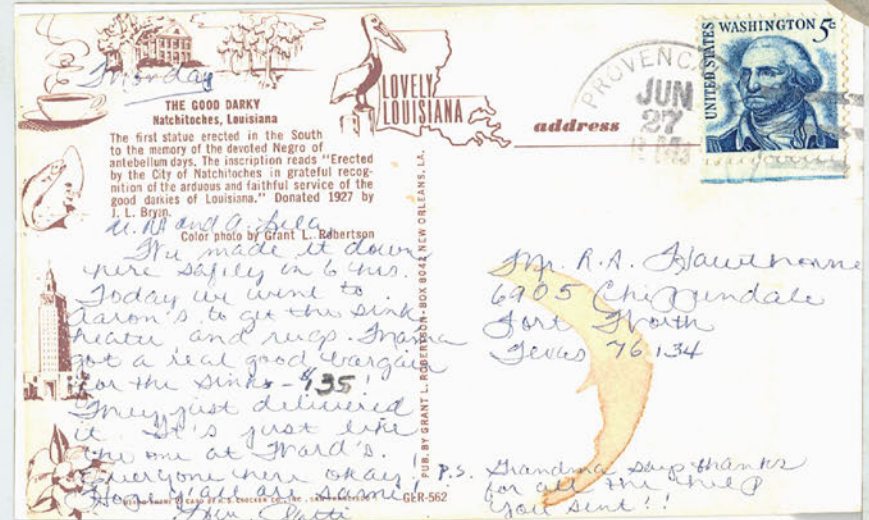 Monday
THE GOOD DARKY
Natchitoches, Louisiana
The first statue erected in the South
to the memory of the devoted Negro of
antebellum days. The inscription reads "Erected
by the City of Natchitoches in grateful recog-
nition of the arduous and faithful service of the
good darkies of Louisiana." Donated 1927 by
J. L. Bryan.
Color photo by Grant L. Robertson
LOVELY
LOUISIANA
address
PROVENCAL
JUN
27
UNITED STATES
WASHINGTON 5¢
and A.
We made it down
here safely in 6 hrs.
Today we went to
Aaron's to get the sink,
heater and rugs. Mama
got a real good bargain
for the sink - $135!
They just delivered
it. It's just like
the one at Ward's.
Everyone here okay!
Hope y'all are same!
PUB. BY GRANT L. ROBERTSON-BOX 8042 NEW ORLEANS, LA.
GLR-562
Mr. R.A. Hawthorne
6905 Chippendale
Fort Worth
Texas 76134
P.S. Grandma says thanks
for all the help
you sent!!